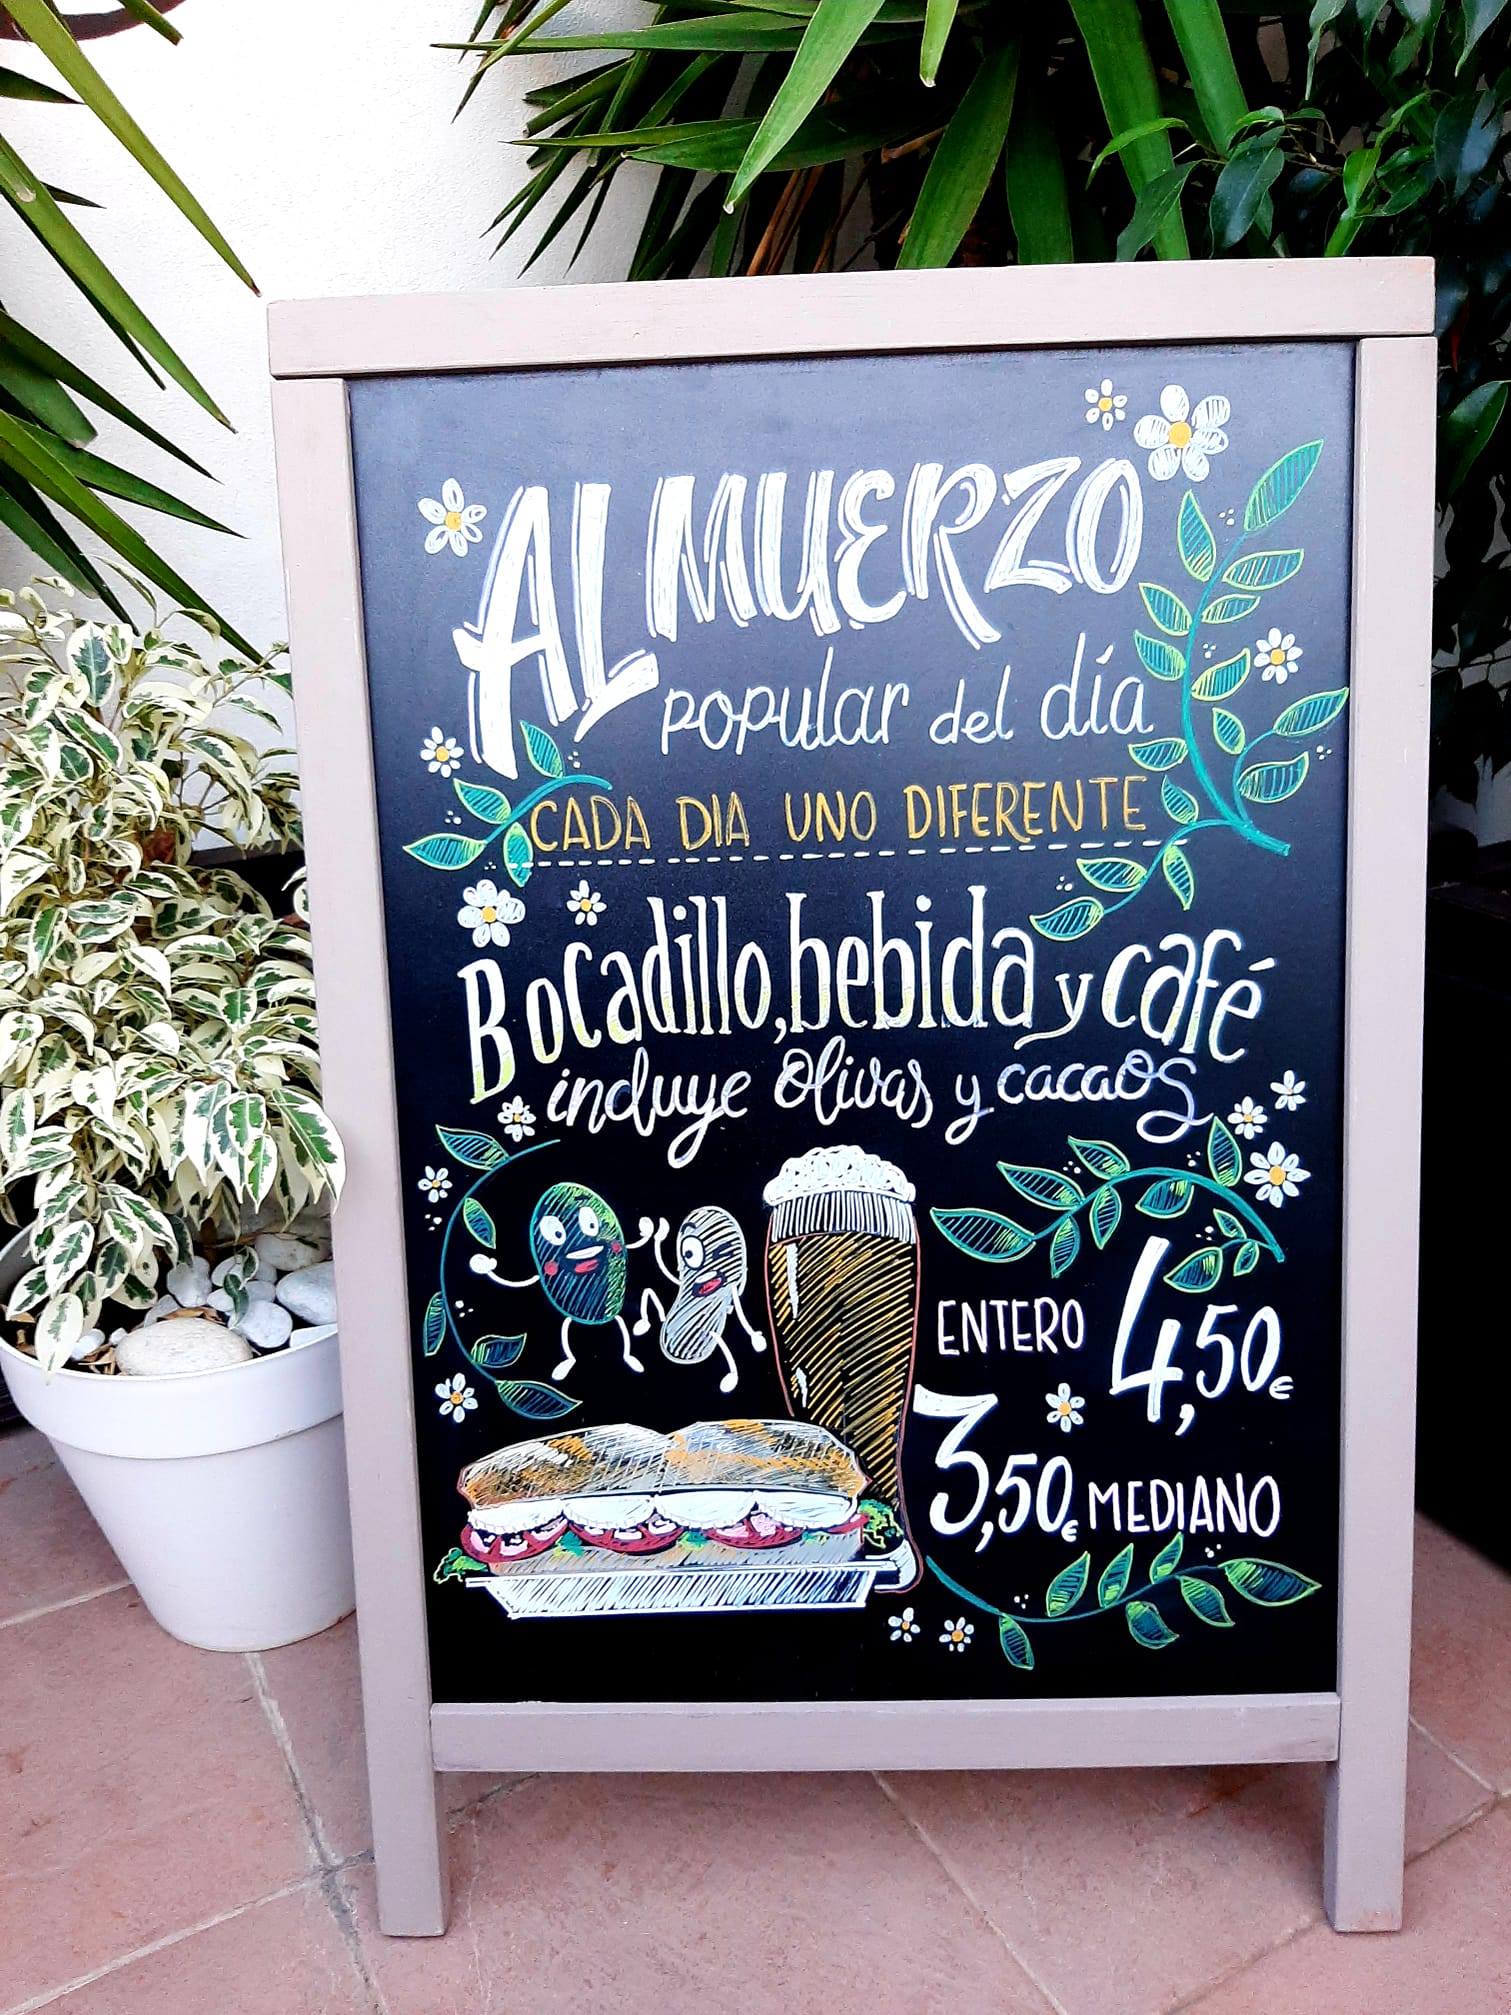 ALMUERZO
popular del día
CADA DIA UNO DIFERENTE
Bocadillo, bebida y café
incluye olivas y cacaos
ENTERO 4,50€
3,50€ MEDIANO